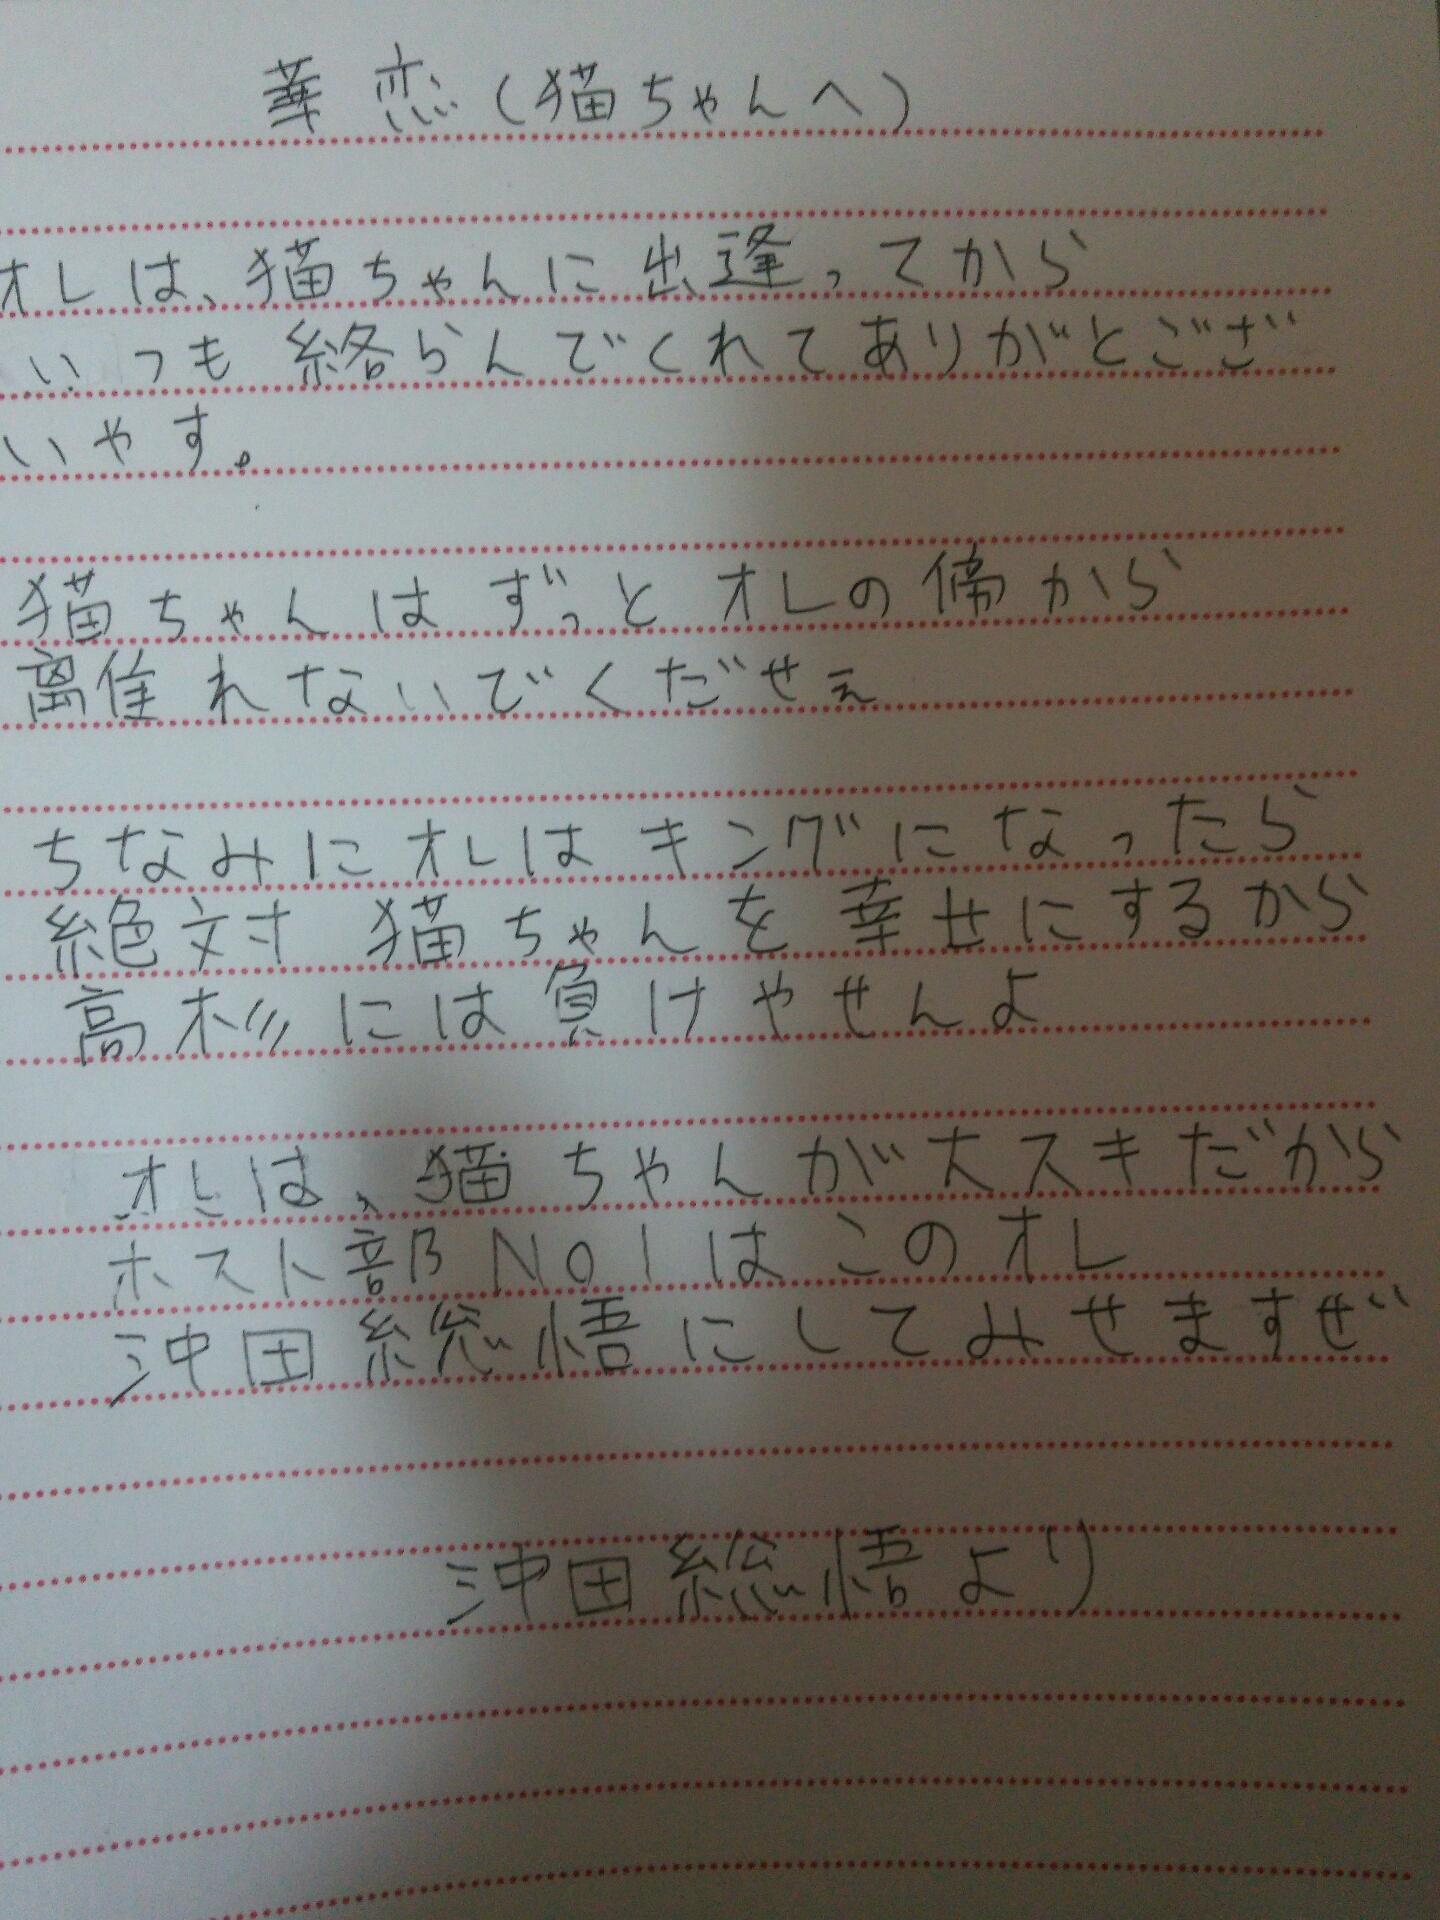 華恋(猫ちゃんへ)
オレは、猫ちゃんに出逢ってから
いつも絡らんでくれてありがとござ
いやす。
猫ちゃんはずっとオレの傍から
離れないでくだせぇ
ちなみにオレはキングになったら
絶対猫ちゃんを幸せにするから
高杉には負けやせんよ
オレは、猫ちゃんが大スキだから
ホスト部No1はこのオレ
沖田総悟にしてみせますぜ
沖田総悟より